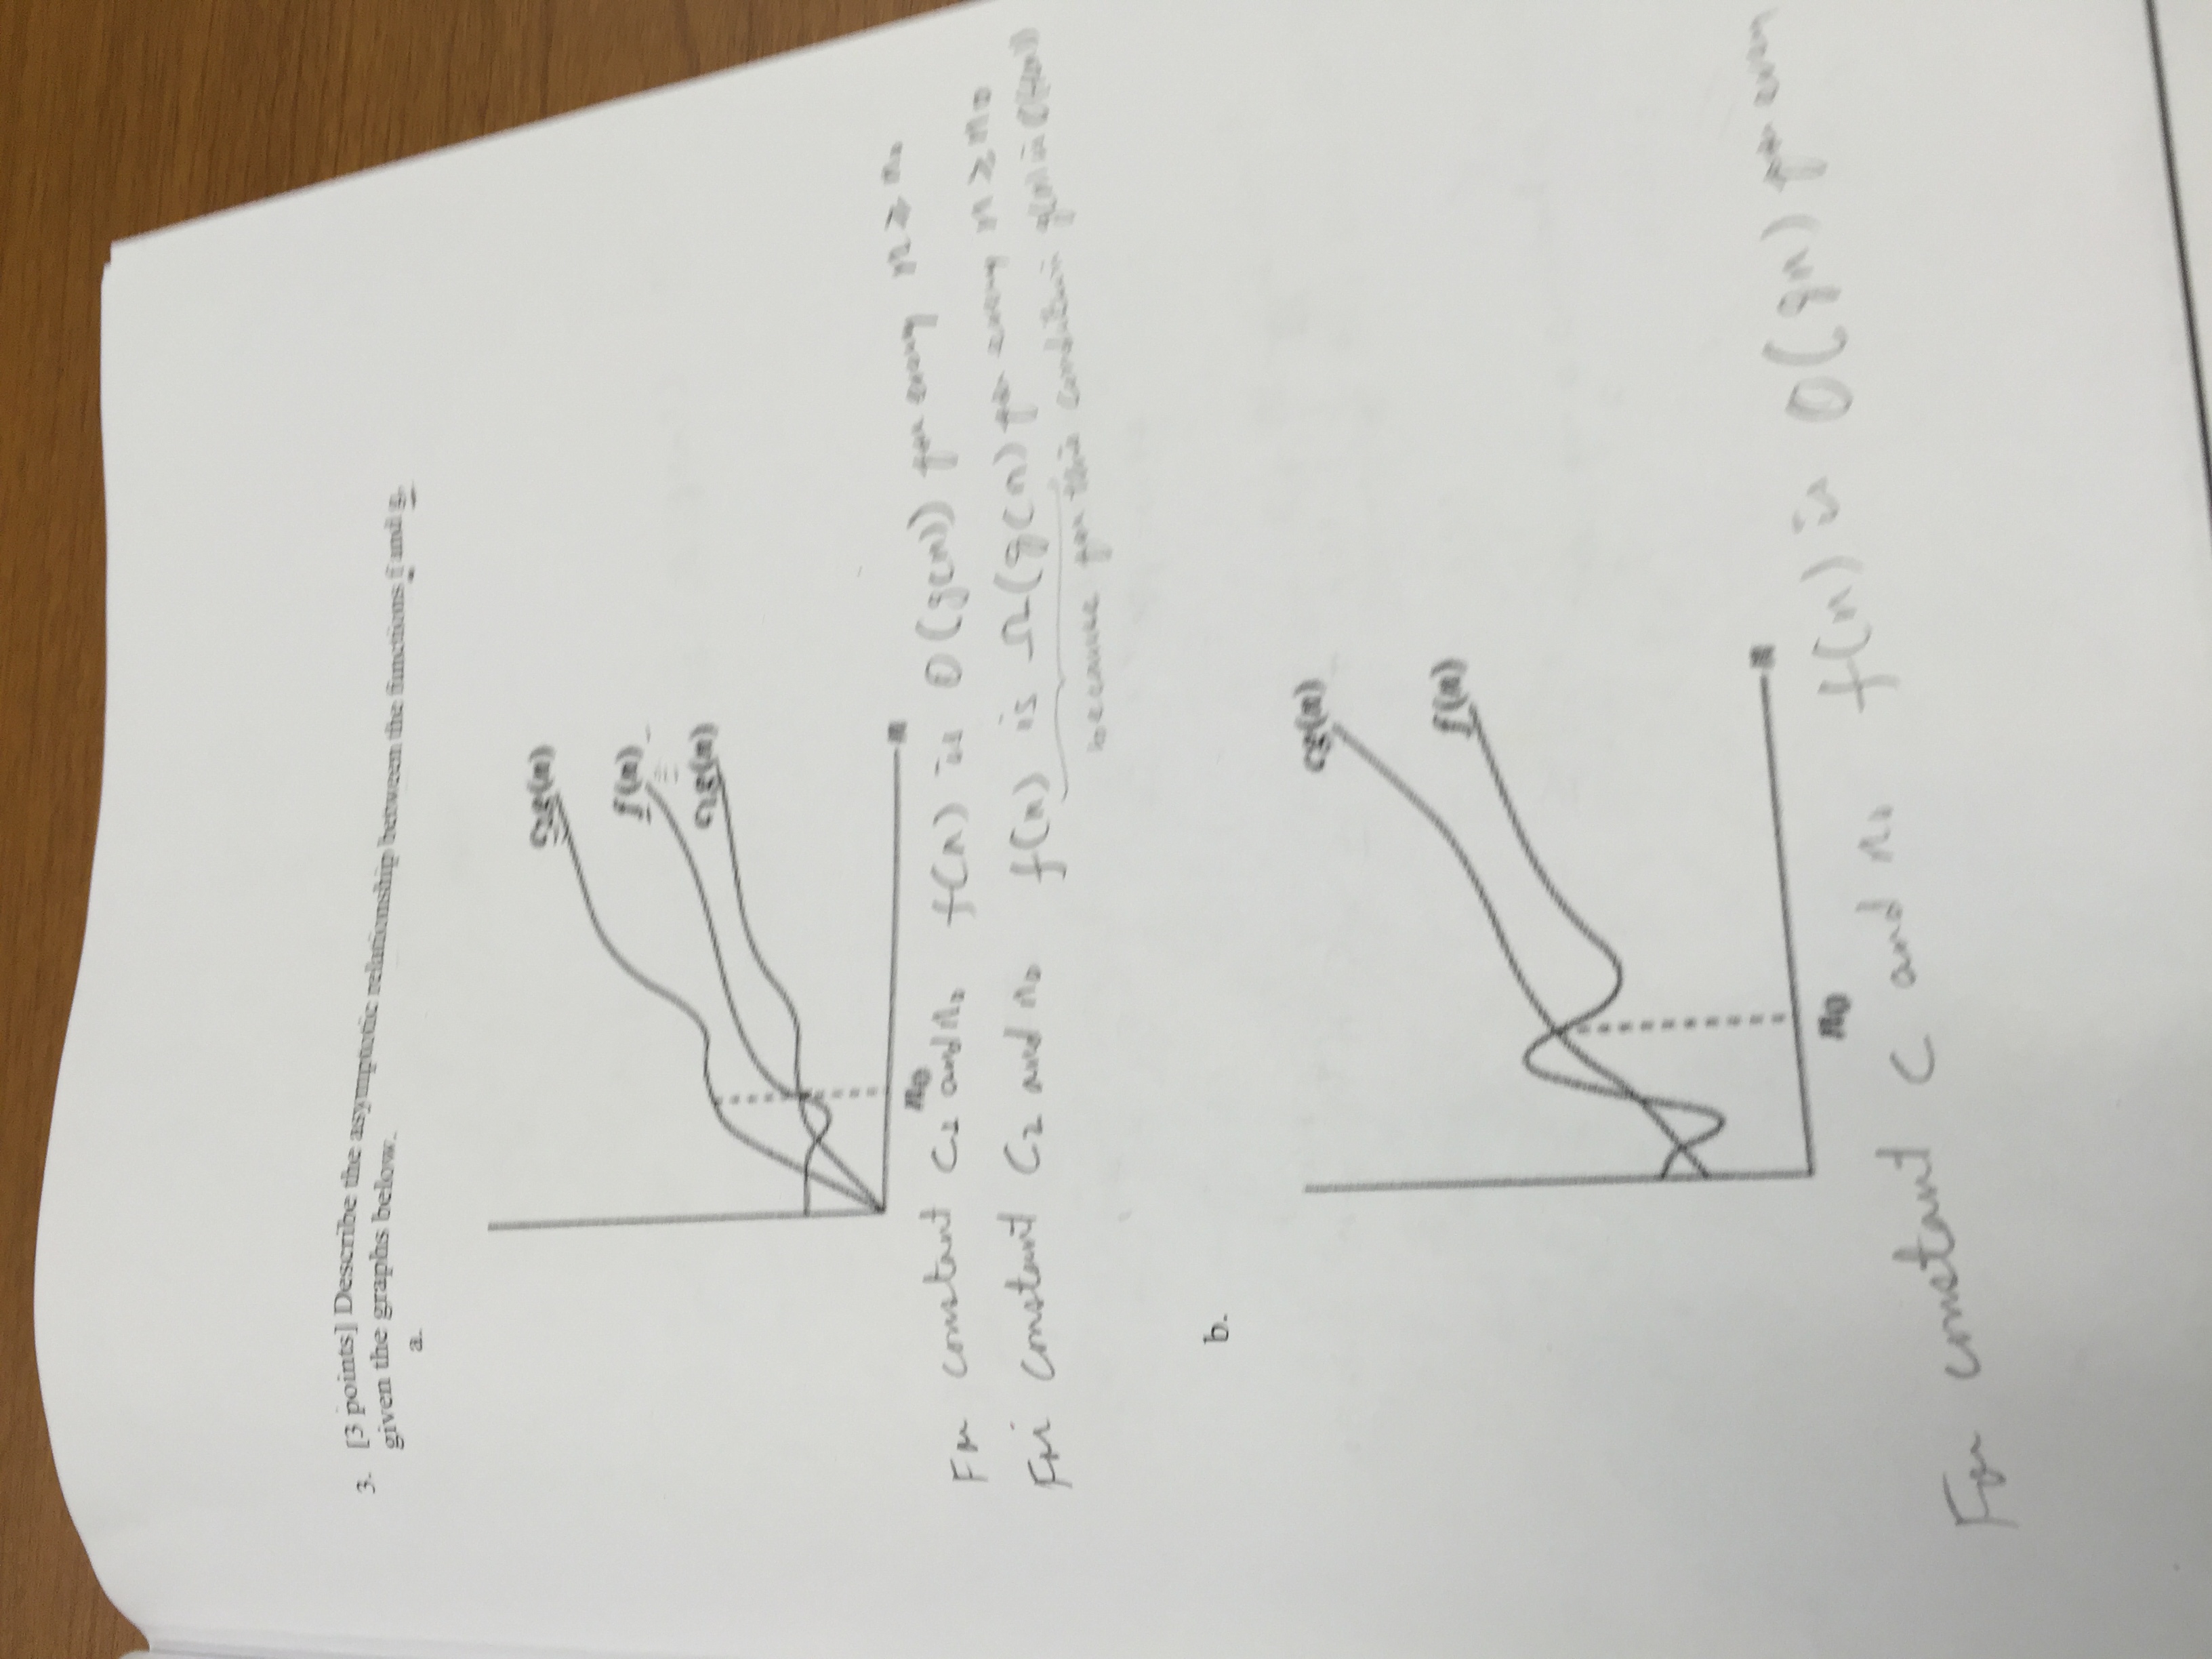 3. [3 points] Describe the asymptotic relationship between the functions f and g,
given the graphs below.
a.
c₂g(n)
f(n)
c₁g(n)
n
n₀
For constant C₁ and n₀ f(n) is O(g(n)) for every n ≥ n₀
For constant C₂ and n₀ f(n) is Ω(g(n) for every n ≥ n₀
because for this condition g(n) is O(f(n))
b.
cg(n)
f(n)
n
n₀
For constant C and n₀ f(n) is O(gn) for